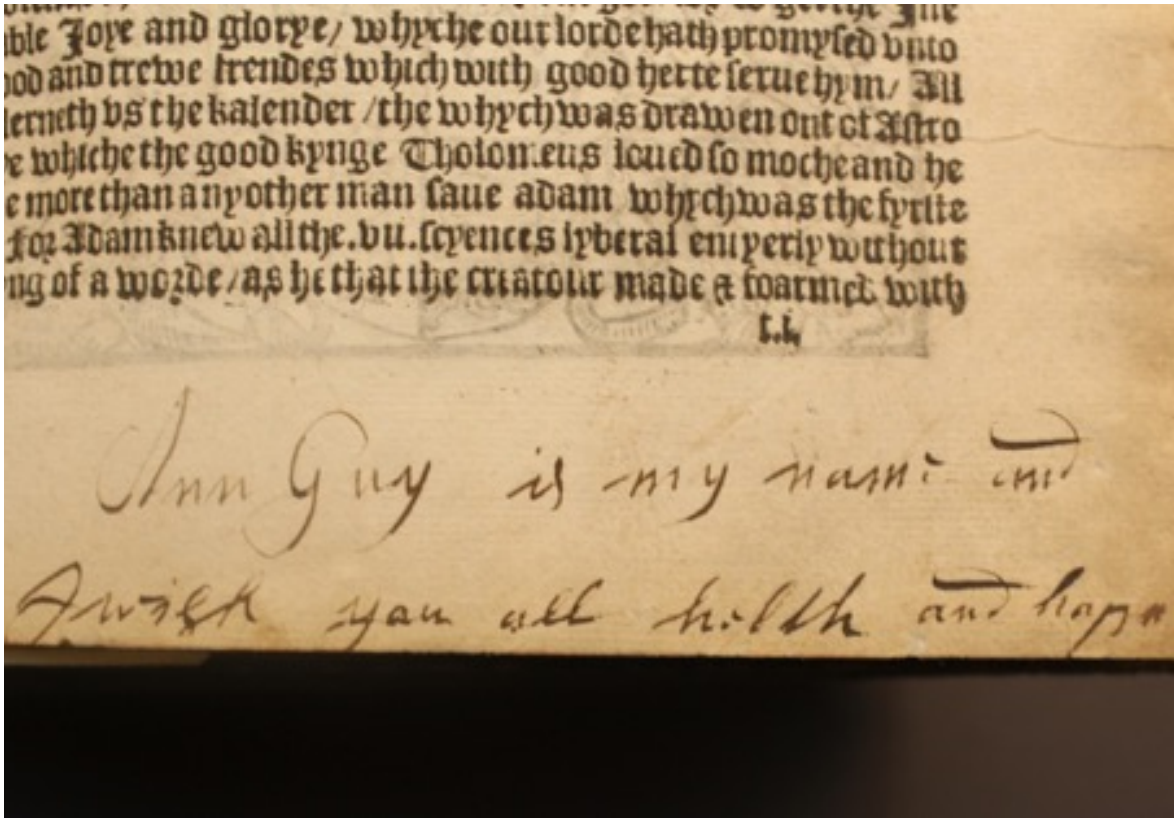 ble Joye and glorye / whyche our lorde hath promysed vnto
ood and trewe frendes which with good herte serue hym / All
lerneth vs the kalender / the whych was drawen out of Astro
e whiche the good kynge Tholomeus loued so moche and he
e more than any other man saue adam whych was the fyrste
for Adam knew all the .vii. scyences lyberal enryerly without
ng of a worde / as he that the creatour made & foarmed with
Ann Guy is my name and
I wish you all helth and hapn